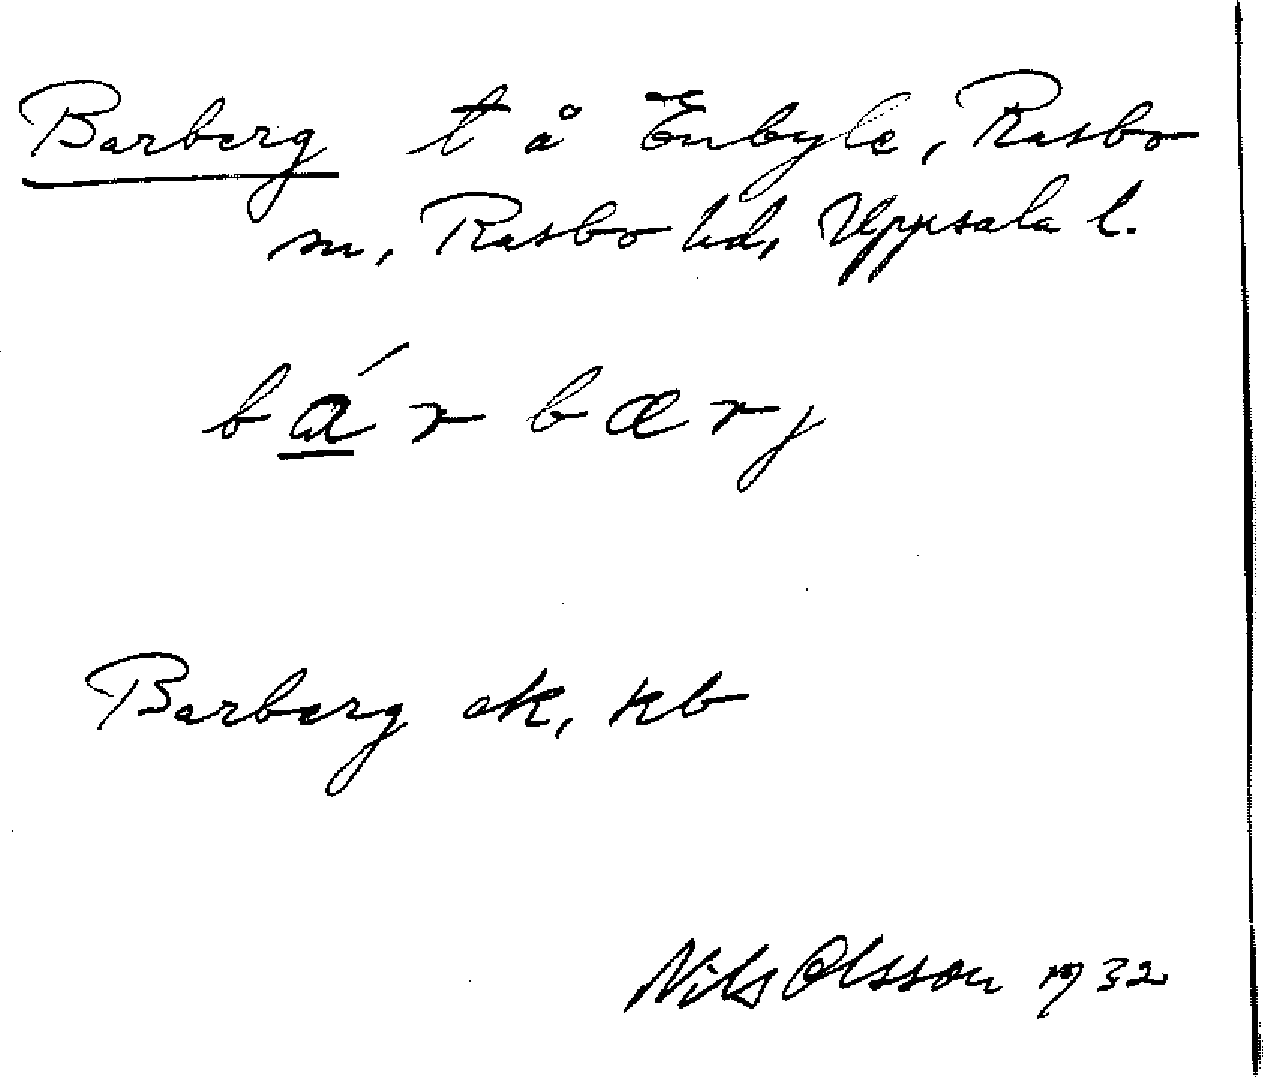 Barberg t å Enbyle, Rasbo
sn, Rasbo hd, Uppsala l.
bárbærj
Barberg ek, kb
Nils Olsson 1932